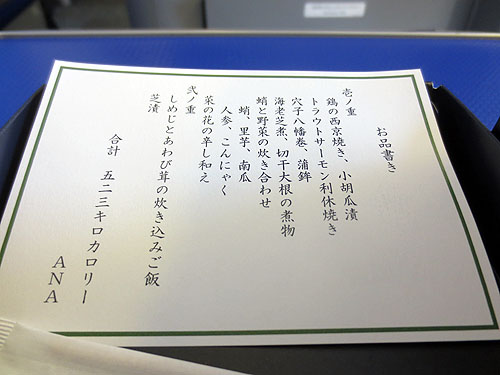 お品書き
壱ノ重
鶏の西京焼き、小胡瓜漬
トラウトサーモン利休焼き
穴子八幡巻、蒲鉾
海老芝煮、切干大根の煮物
蛸と野菜の炊き合わせ
蛸、里芋、南瓜
人参、こんにゃく
菜の花の辛し和え
弐ノ重
しめじとあわび茸の炊き込みご飯
芝漬
合計 五二三キロカロリー
ANA